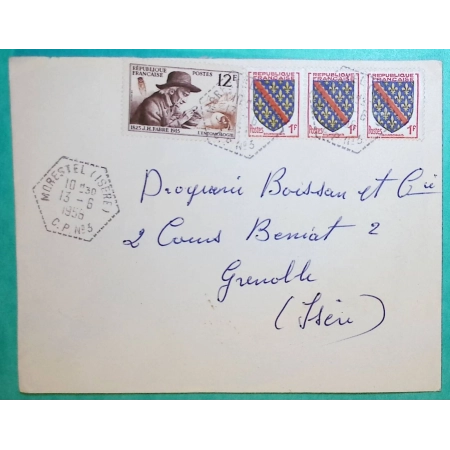 RÉPUBLIQUE FRANÇAISE POSTES 12F
1825 J.H. FABRE 1915
RÉPUBLIQUE FRANÇAISE
Postes 1F
RÉPUBLIQUE FRANÇAISE
Postes 1F
RÉPUBLIQUE FRANÇAISE
Postes 1F
MORESTEL (ISÈRE)
10 H30
13 - 6
1956
C.P. N°5
Droguerie Boissan et Cie
2 Cours Berriat 2
Grenoble
(Isère)